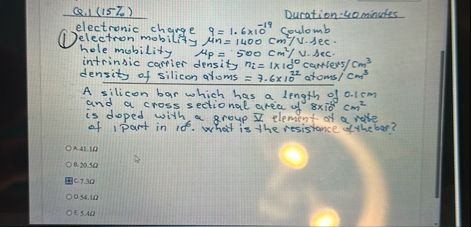 Q.1 (15%) Duration: 40 minutes
electronic charge q = 1.6x10⁻¹⁹ Coulomb
① electron mobility μn = 1400 cm²/V.sec.
hole mobility μp = 500 cm²/V.sec.
intrinsic carrier density nᵢ = 1x10¹⁰ carriers/cm³
density of silicon atoms = 7.6x10²² atoms/cm³
A silicon bar which has a length of 0.1cm
and a cross sectional area of 8x10 cm²
is doped with a group V element at a rate
of 1 part in 10⁸. what is the resistance of the bar?
A. 41.1Ω
B. 20.5Ω
C. 7.3Ω
D. 54.1Ω
E. 5.4Ω